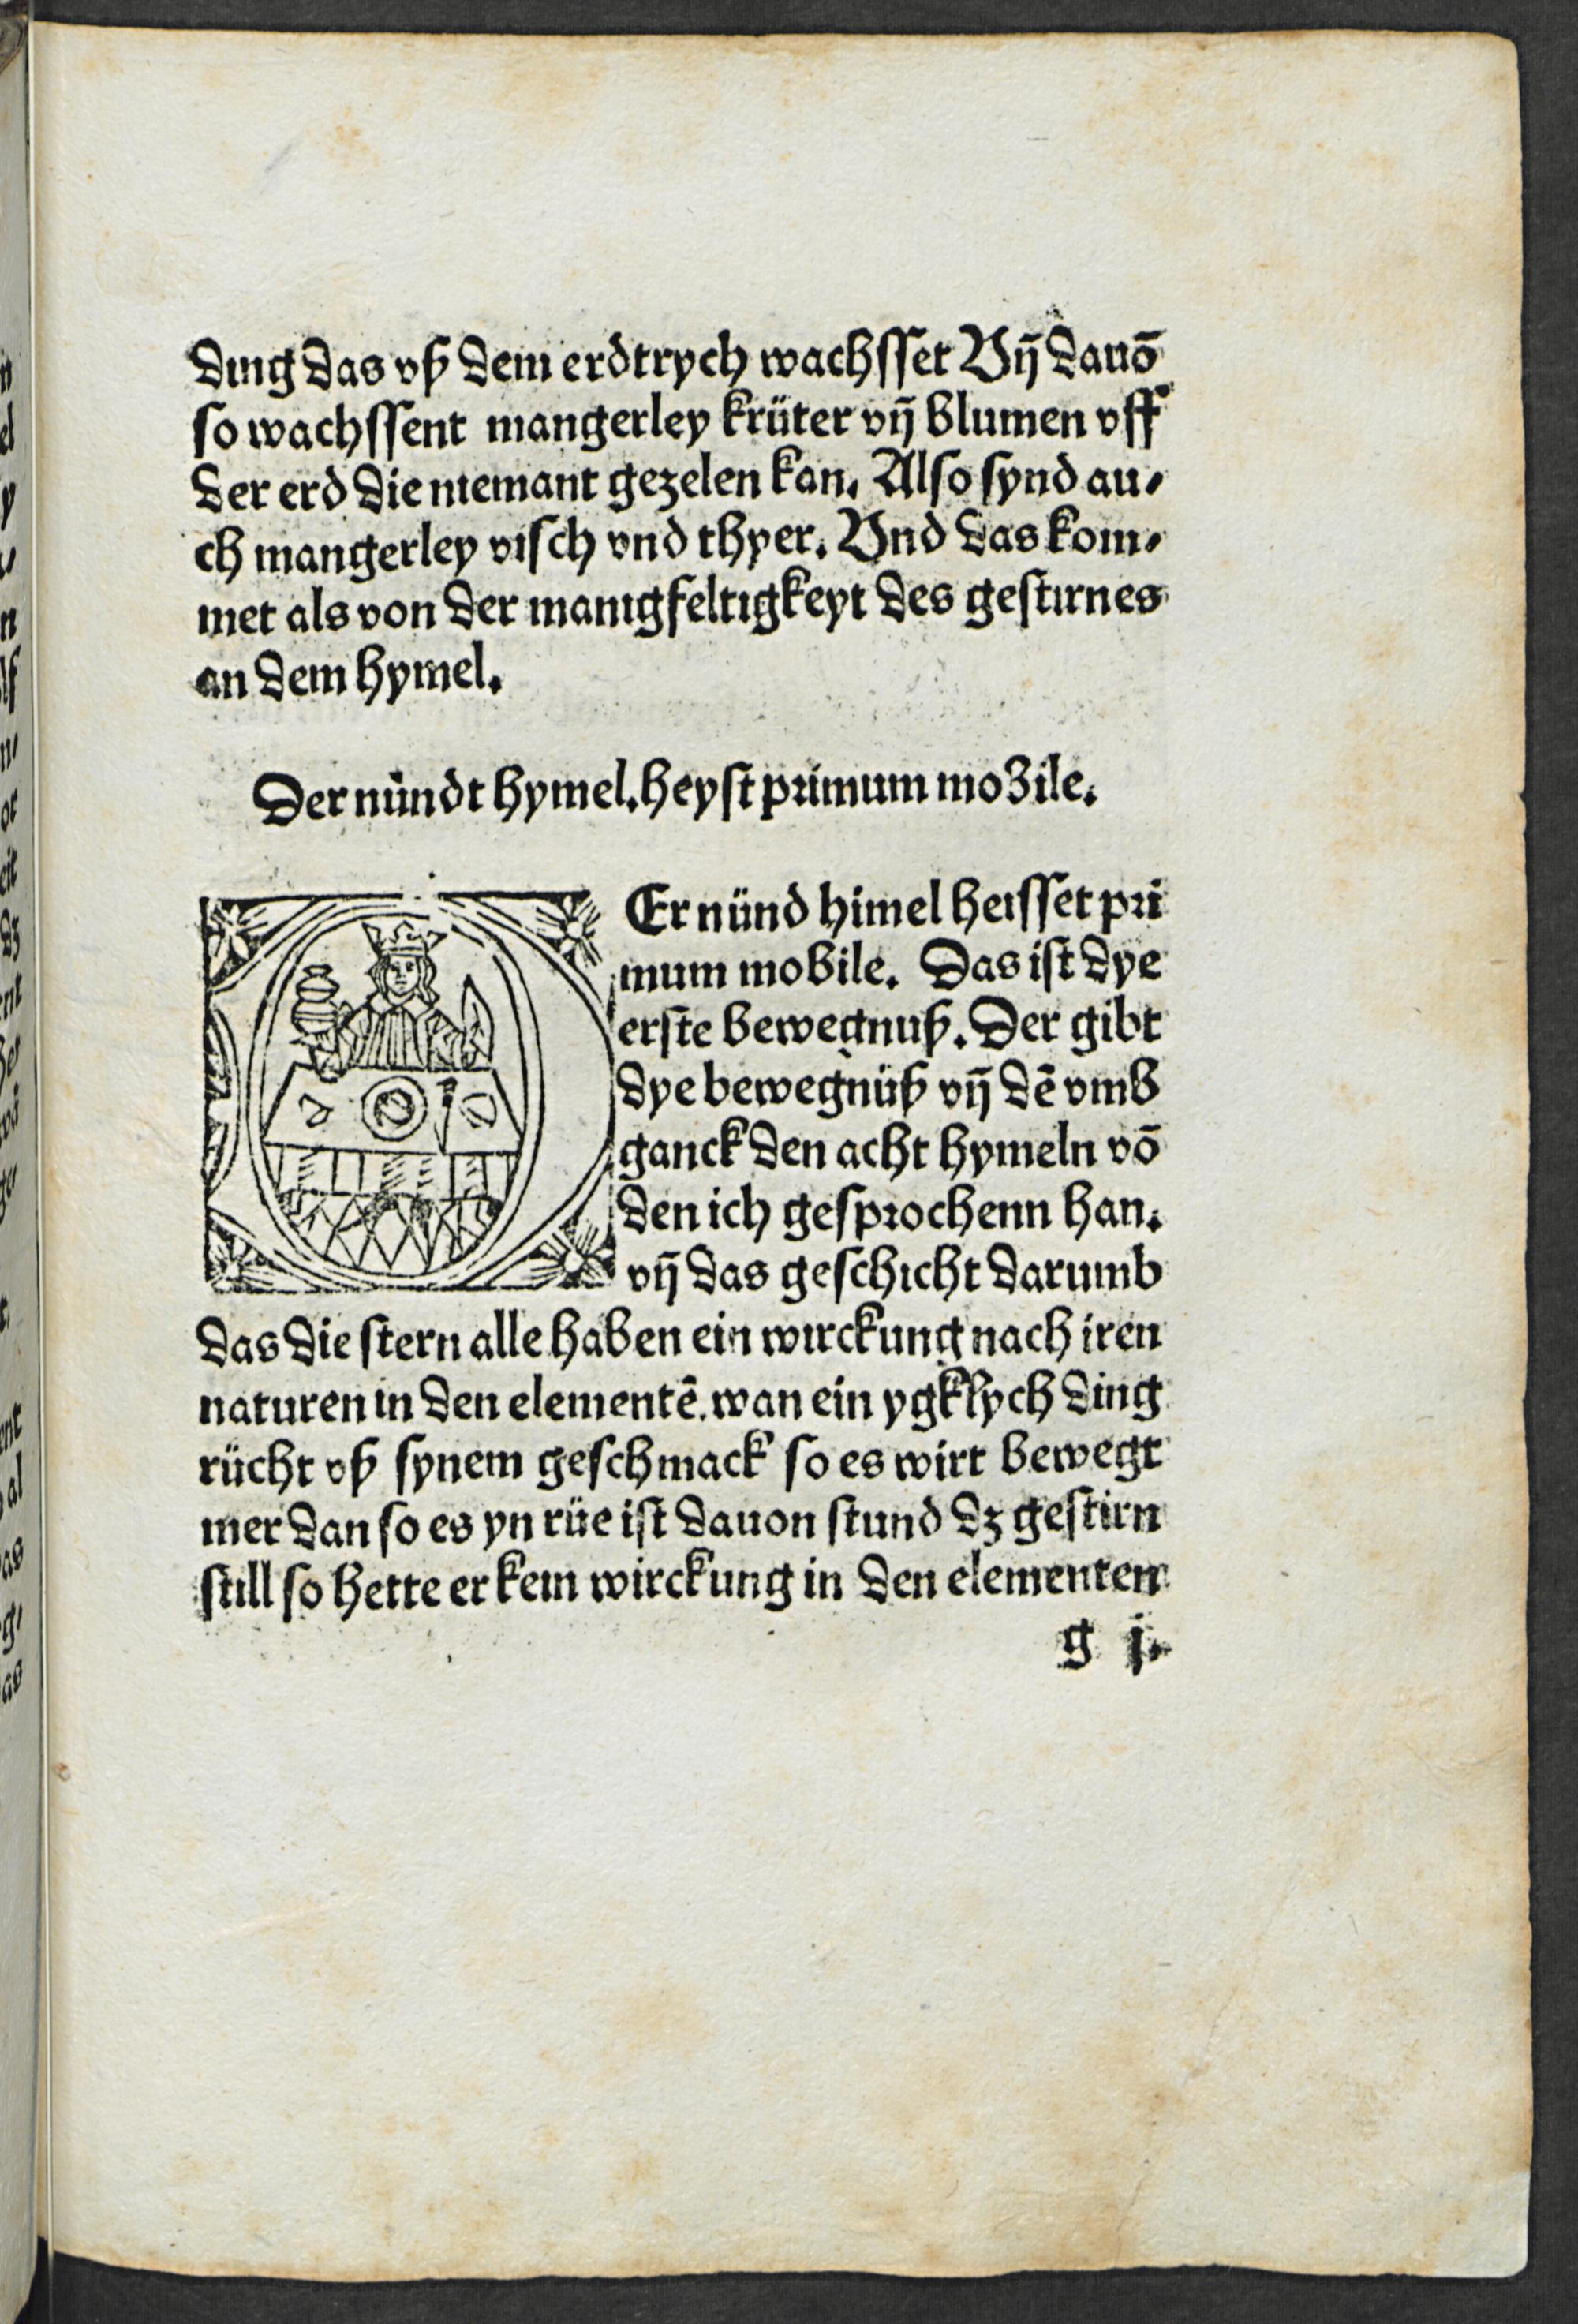 ding das vß dem erdtrych wachsset Vñ dauō
so wachssent mangerley krüter vñ blumen vff
der erd die niemant gezelen kan. Also synd au⸗
ch mangerley visch vnd thyer. Vnd das kom⸗
met als von der manigfeltigkeyt des gestirnes
an dem hymel.
Der nündt hymel. heyst primum mobile.
Er nünd himel heisset pri
mum mobile. Das ist dye
erste bewegnuß. Der gibt
dye bewegnüß vñ dē vmb
ganck den acht hymeln vō
den ich gesprochenn han.
vñ das geschicht darumb
das die stern alle haben ein wirckung nach iren
naturen in den elementē. wan ein ygklych ding
rücht vß synem geschmack so es wirt bewegt
mer dan so es yn rüe ist dauon stund dz gestirn
still so hette er kein wirckung in den elementen
g j.